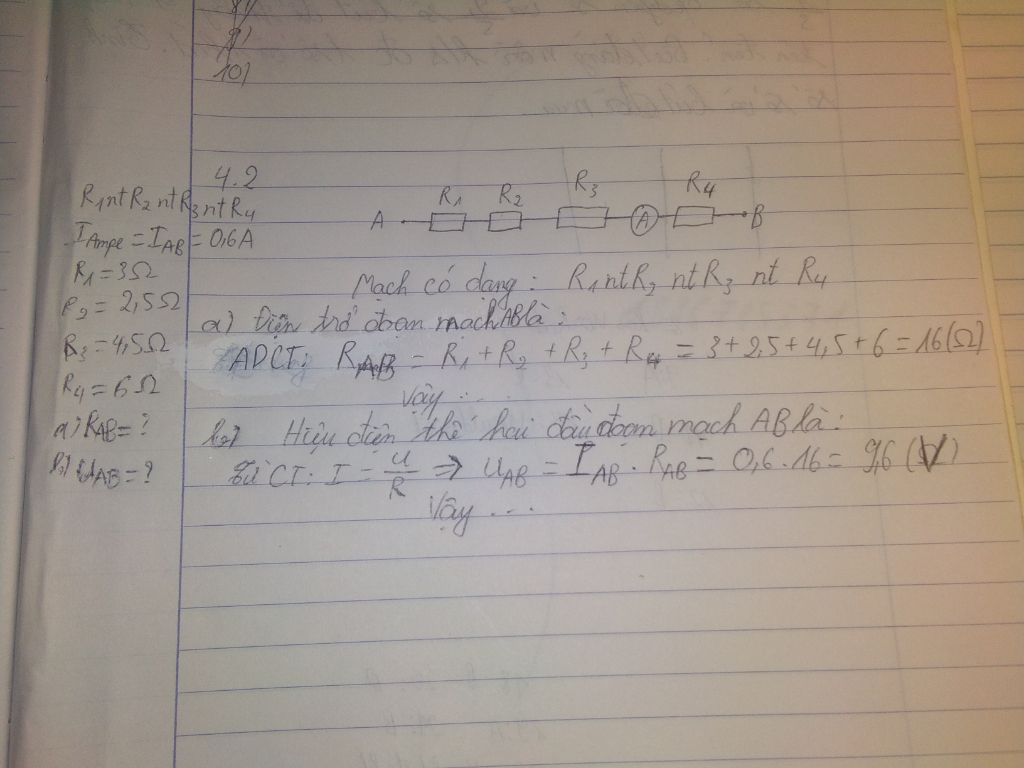 10)
4.2
R1 nt R2 nt R3 nt R4
I Ampe = IAB = 0,6A
R1 = 3Ω
R2 = 2,5Ω
R3 = 4,5Ω
R4 = 6Ω
a) RAB = ?
b) UAB = ?
R1 R2 R3 R4
A A B
Mạch có dạng: R1 nt R2 nt R3 nt R4
a) Điện trở đoạn mạch AB là:
ADCT: RAB = R1 + R2 + R3 + R4 = 3 + 2,5 + 4,5 + 6 = 16 (Ω)
Vậy ...
b) Hiệu điện thế hai đầu đoạn mạch AB là:
Từ CT: I = U/R => UAB = IAB . RAB = 0,6 . 16 = 9,6 (V)
Vậy ...